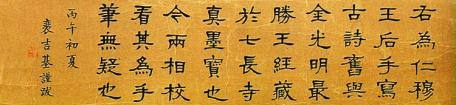 右為仁穆
王后手寫
古詩舊與
全光明最
勝王經藏
於七長寺
真墨寶也
今兩相校
看其為手
筆無疑也
丙午初夏
裵吉基謹跋